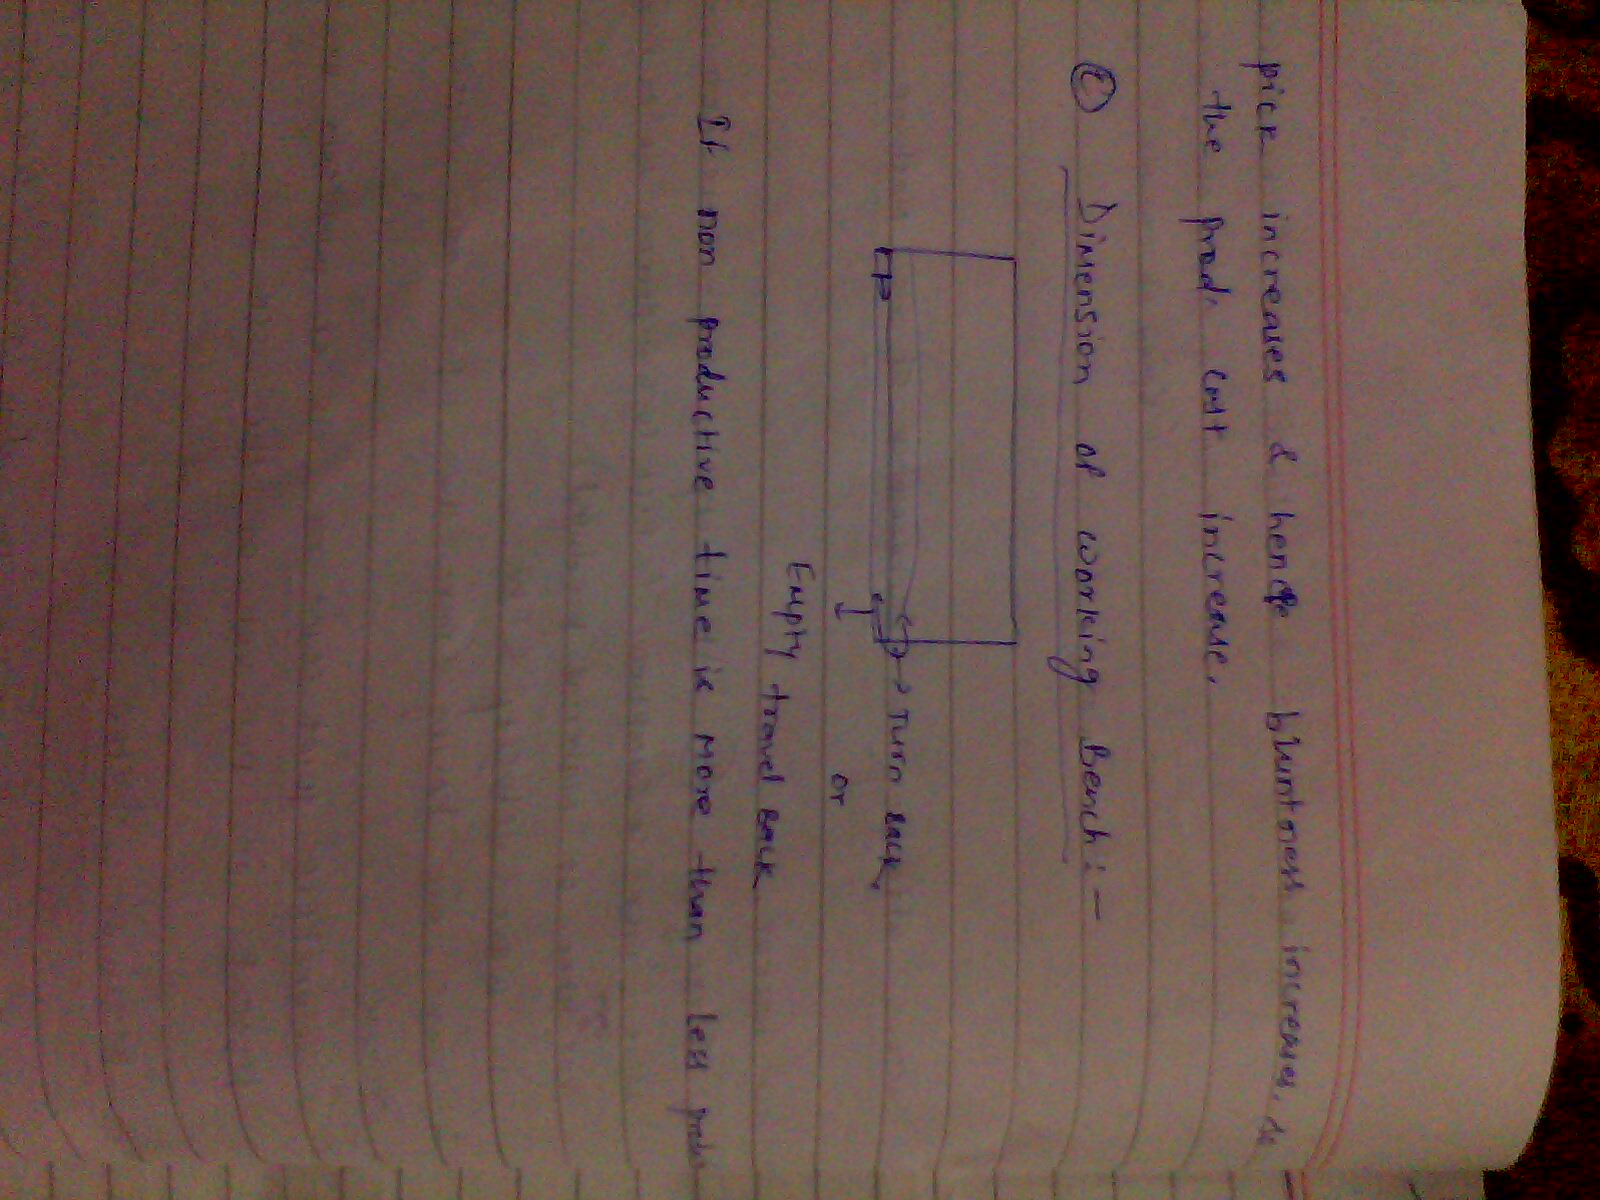 pick increases & hence bluntness increases. So
the prod. cost increase.
② Dimension of working Bench :-
→ Turn back.
or
Empty travel Back
If non productive time is more than less prodn